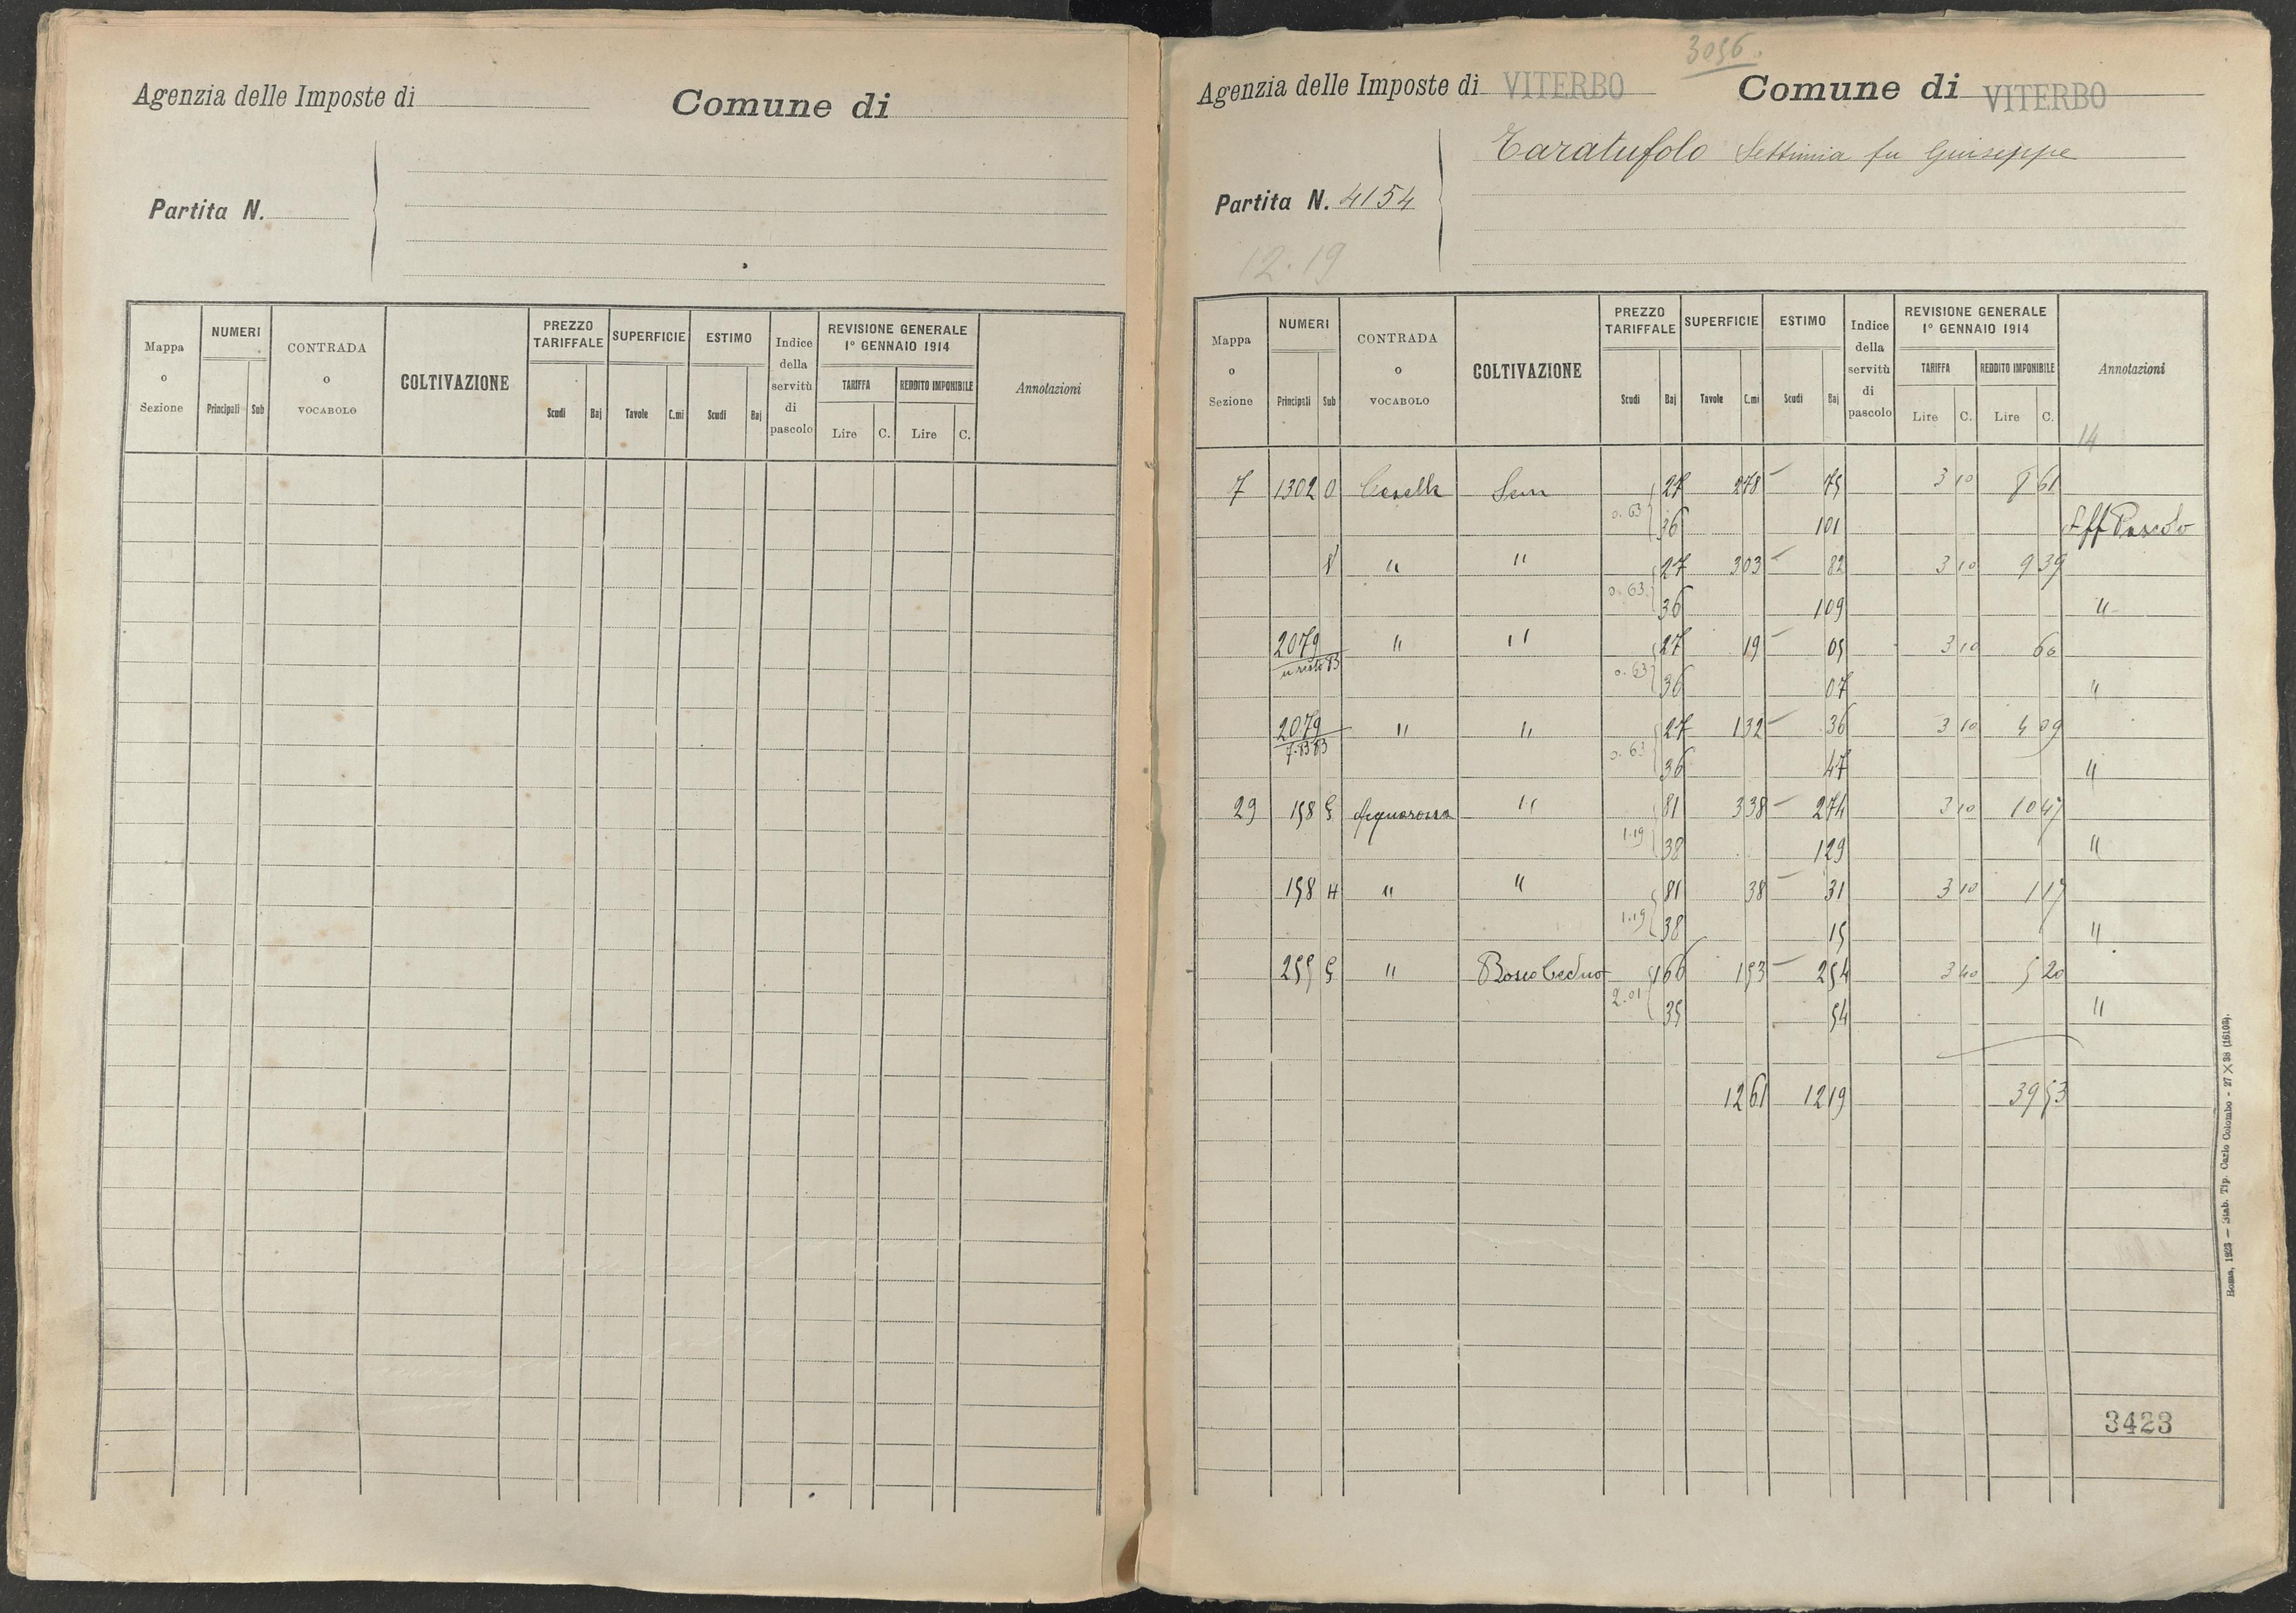 Agenzia delle Imposte di
Comune di
Partita N.
Mappa o Sezione
NUMERI
Principali Sub
CONTRADA o VOCABOLO
COLTIVAZIONE
PREZZO TARIFFALE
Scudi Baj
SUPERFICIE
Tavole C.mi
ESTIMO
Scudi Baj
Indice della servitù di pascolo
REVISIONE GENERALE
1º GENNAIO 1914
TARIFFA
Lire C.
REDDITO IMPONIBILE
Lire C.
Annotazioni
3056.
Agenzia delle Imposte di VITERBO
Comune di VITERBO
Taratufolo Settimia fu Giuseppe
Partita N. 4154
12.19
Mappa o Sezione
NUMERI
Principali Sub
CONTRADA o VOCABOLO
COLTIVAZIONE
PREZZO TARIFFALE
Scudi Baj
SUPERFICIE
Tavole C.mi
ESTIMO
Scudi Baj
Indice della servitù di pascolo
REVISIONE GENERALE
1º GENNAIO 1914
TARIFFA
Lire C.
REDDITO IMPONIBILE
Lire C.
Annotazioni
14
7 1302 O Sem 27 278 – 75 3 10 8 61
0.63 36 101 Aff Pascolo
" " 27 303 – 82 3 10 9 39
0.63 36 109 "
2079 " " 27 19 – 05 3 10 60
0.63 36 07 "
2079 " " 27 132 – 36 3 10 4 09
0.63 36 47 "
29 158 G Acquarossa " 81 338 – 274 3 10 10 47
1.19 38 129 "
158 H " " 81 38 – 31 3 10 1 17
1.19 38 15 "
255 G " Bosco Ceduo 166 153 – 254 3 40 5 20
2.01 35 54 "
1261 1219 39 53
3423
Roma, 1923 — Stab. Tip. Carlo Colombo - 27 × 38 (16103).